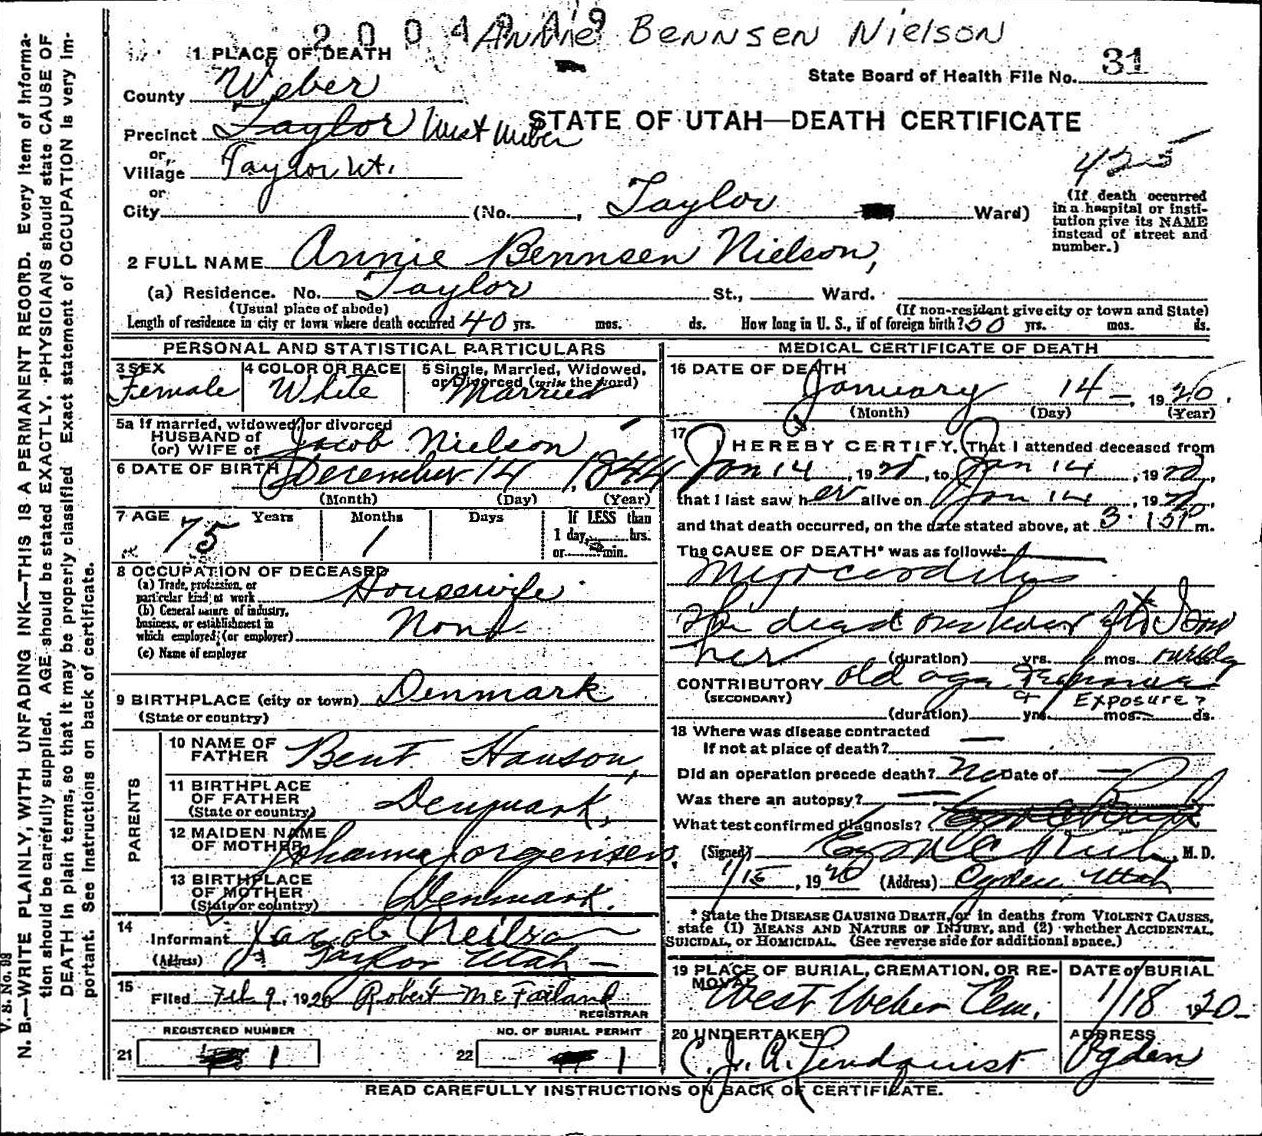 2004919 Annie Bennsen Nielson
1 PLACE OF DEATH
State Board of Health File No. 31
County Weber
Precinct Taylor West Weber
STATE OF UTAH—DEATH CERTIFICATE
or
Village Taylor Ut.
425
or
City (No. , Taylor Ward)
(If death occurred in a hospital or institution give its NAME instead of street and number.)
2 FULL NAME Annie Bennsen Nielson,
(a) Residence. No. Taylor St., Ward.
(Usual place of abode) (If non-resident give city or town and State)
Length of residence in city or town where death occurred 40 yrs. mos. ds. How long in U. S., if of foreign birth? 50 yrs. mos. ds.
PERSONAL AND STATISTICAL PARTICULARS
3 SEX Female
4 COLOR OR RACE White
5 Single, Married, Widowed, or Divorced (write the word) Married
5a If married, widowed, or divorced
HUSBAND of
(or) WIFE of Jacob Nielson
6 DATE OF BIRTH December 14 1844
(Month) (Day) (Year)
7 AGE 75 Years 1 Months Days If LESS than 1 day, hrs. or min.
8 OCCUPATION OF DECEASED
(a) Trade, profession, or particular kind of work Housewife
(b) General nature of industry, business, or establishment in which employed (or employer) None
(c) Name of employer
9 BIRTHPLACE (city or town) Denmark
(State or country)
PARENTS
10 NAME OF FATHER Bent Hanson,
11 BIRTHPLACE OF FATHER (State or country) Denmark,
12 MAIDEN NAME OF MOTHER Johanna Jorgensen,
13 BIRTHPLACE OF MOTHER (State or country) Denmark.
14 Informant Jacob Neilson
(Address) Taylor Utah
15 Filed Feb 9, 1920 Robert McFarland
REGISTRAR
REGISTERED NUMBER
21 1
NO. OF BURIAL PERMIT
22 1
MEDICAL CERTIFICATE OF DEATH
16 DATE OF DEATH January 14, 1920.
(Month) (Day) (Year)
17 I HEREBY CERTIFY, That I attended deceased from
Jan 14, 1920, to Jan 14, 1920,
that I last saw her alive on Jan 14, 1920,
and that death occurred, on the date stated above, at 3:15 P m.
The CAUSE OF DEATH* was as follows:
Myocarditis
She dead
her (duration) yrs. mos.
CONTRIBUTORY (SECONDARY) old age & Exposure
Exposure?
(duration) yrs. mos. ds.
18 Where was disease contracted
if not at place of death?
Did an operation precede death? No Date of
Was there an autopsy?
What test confirmed diagnosis?
(Signed) Rich, M. D.
1/15, 1920 (Address) Ogden Utah
* State the DISEASE CAUSING DEATH, or in deaths from VIOLENT CAUSES,
state (1) MEANS AND NATURE OF INJURY, and (2) whether ACCIDENTAL,
SUICIDAL, or HOMICIDAL. (See reverse side for additional space.)
19 PLACE OF BURIAL, CREMATION, OR REMOVAL West Weber Cem.
DATE of BURIAL 1/18 1920
20 UNDERTAKER C. J. A. Lindquist
ADDRESS Ogden
READ CAREFULLY INSTRUCTIONS ON BACK OF CERTIFICATE.
V. S. No. 98
N. B.—WRITE PLAINLY, WITH UNFADING INK—THIS IS A PERMANENT RECORD. Every item of information should be carefully supplied. AGE should be stated EXACTLY. PHYSICIANS should state CAUSE OF DEATH in plain terms, so that it may be properly classified. Exact statement of OCCUPATION is very important. See instructions on back of certificate.